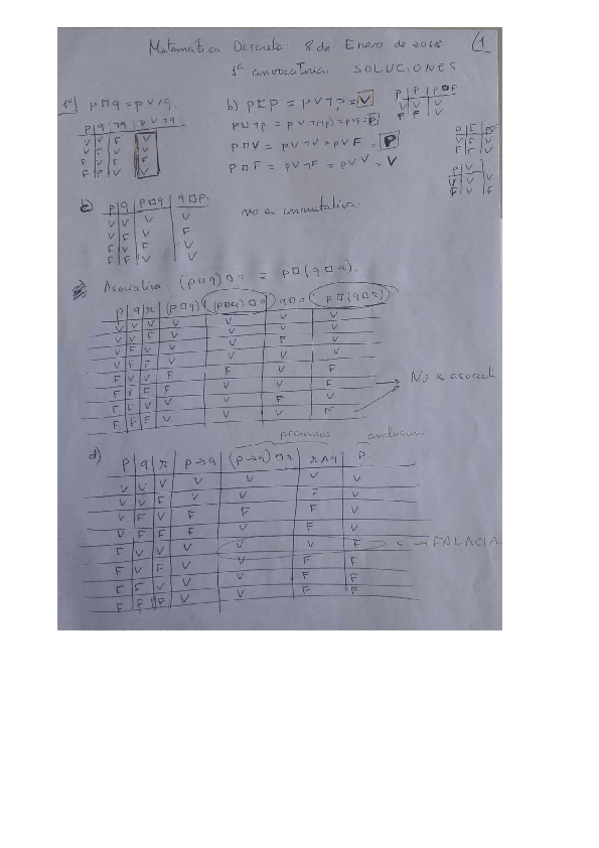 Matemática Discreta 8 de Enero de 2018 (1
1ª convocatoria. SOLUCIONES
1º) p□q = p∨¬q.
p | q | ¬q | p∨¬q
V V F V
V F V V
F V F F
F F V V
b) p□p = p∨¬p = V
p□¬p = p∨¬(¬p) = p∨p = P
p□V = p∨¬V = p∨F = P
p□F = p∨¬F = p∨V = V
c) p | q | p□q | q□p
V V V V
V F V F
F V F V
F F V V
no es conmutativa.
Asociativa. (p□q)□r = p□(q□r).
p | q | r | (p□q) | (p□q)□r | q□r | p□(q□r)
V V V V V V V
V V F V V V V
V F V V V F V
V F F V V V V
F V V F F V F
F V F F V V F
F F V V V F V
F F F V V V F
No es asociati
d) premisas
p | q | r | p→q | (p→q)□r | r∧q | p
V V V V V V V
V V F V V F V
V F V F F F V
V F F F V F V
F V V V V V F FALACIA
F V F V V F F
F F V V V F F
F F F V V F F